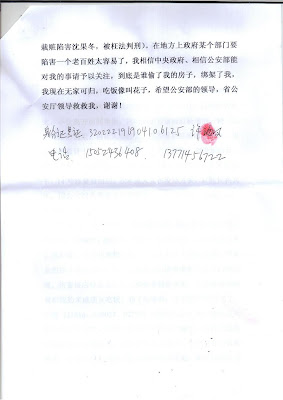 栽赃陷害沈果冬。被枉法判刑)。在地方上政府某个部门要
陷害一个老百姓太容易了,我相信中央政府。相信公安部能
对我的事请予以关注,到底是谁偷了我的房子,绑架了我,
我现在无家可归。吃饭像叫花子,希望公安部的领导,省公
安厅领导救救我,谢谢!
身份证号码 320222196904106125 许
电话 15052436408. 13771456722